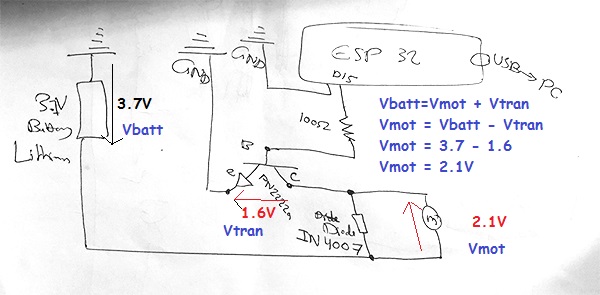 ESP 32
GND
GND
D15
USB → PC
3.7V
Battery
Lithium
3.7V
Vbatt
100Ω
Vbatt=Vmot + Vtran
Vmot = Vbatt - Vtran
Vmot = 3.7 - 1.6
Vmot = 2.1V
B
e
C
PN2222a
1.6V
Vtran
Diode
IN4007
m
2.1V
Vmot